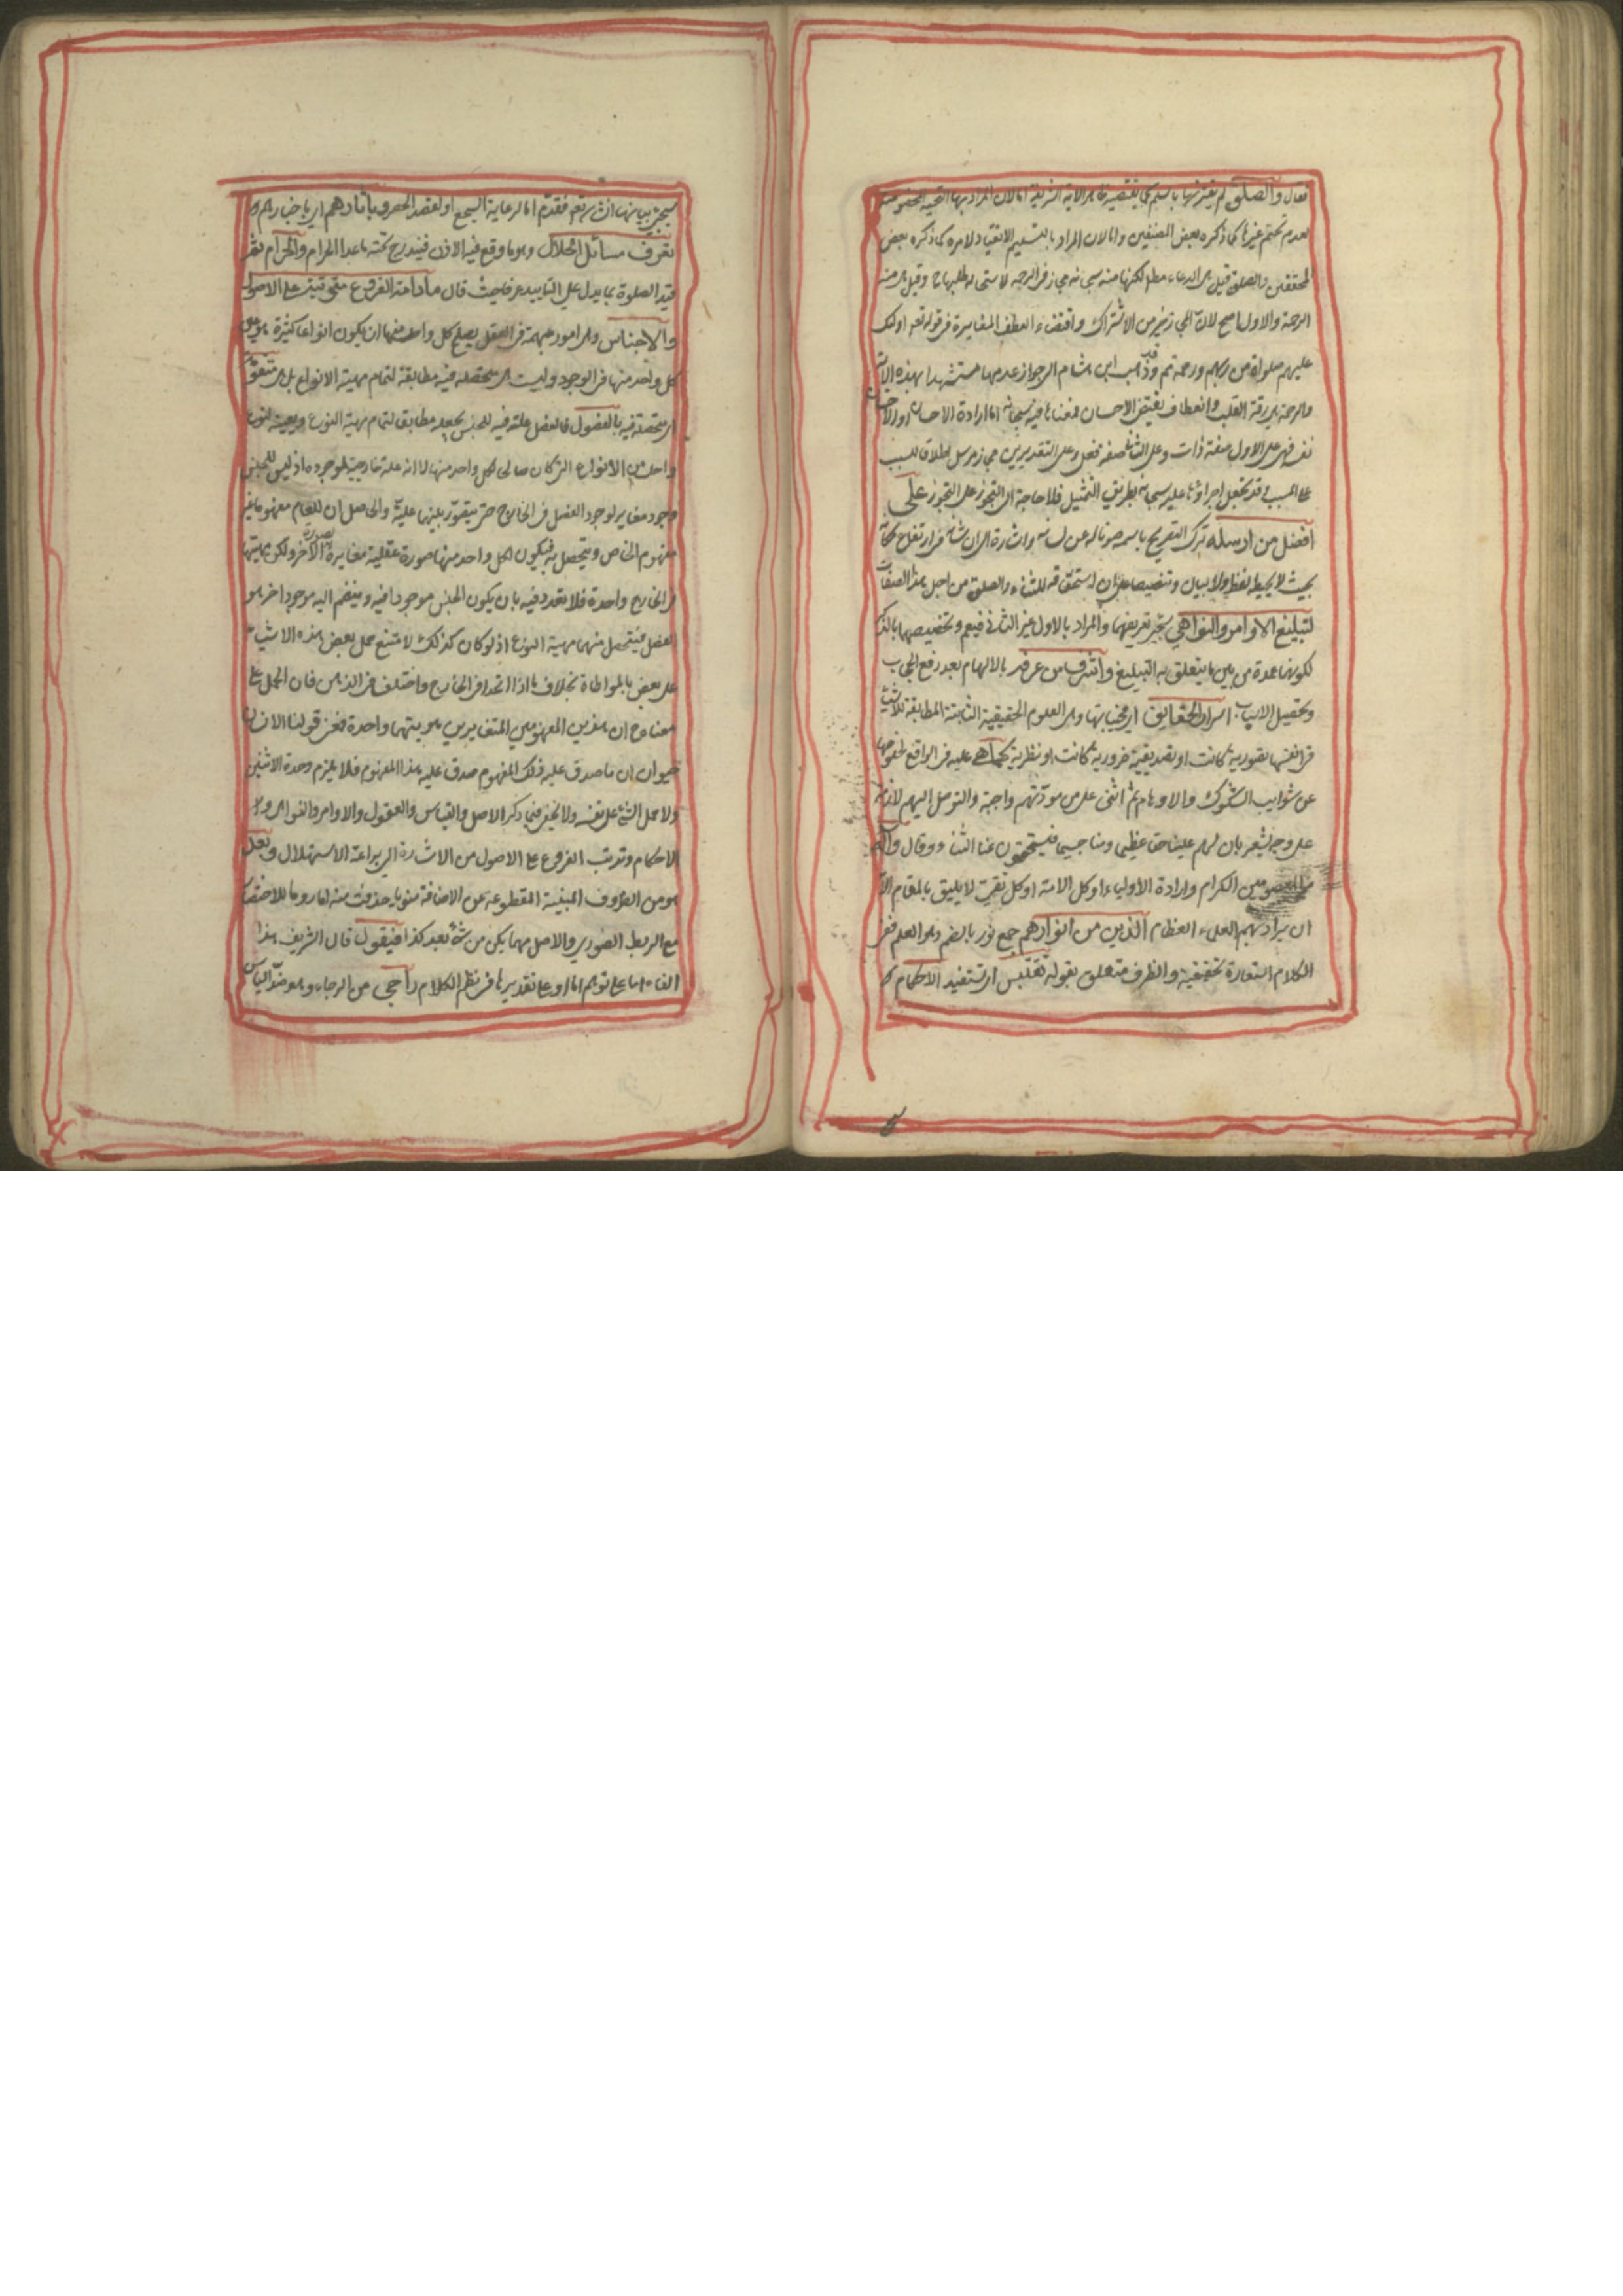 فقال والصلوة لم يقترنها بالتسليم كما يقتضيه ظاهر الاية الشريفة اما لان المراد بها التحية المخصوصة
لعدم تحتم غيرها كما ذكره بعض المصنفين واما لان المراد بالتسليم الانقياد لامره كما ذكره بعض
المحققين والصلوة قيل هي الدعاء مطلقا لكنها منه سبحانه مجاز في الرحمة لاستحالة طلبها وقيل هي منه
الرحمة والاول اصح لان المجاز خير من الاشتراك واقتضاء العطف المغايرة في قوله تعه اولئك
عليهم صلواة من ربهم ورحمة نعم وقد ذهب ابن هشام الى جواز عدمها مستشهدا بهذه الاية
والرحمة هي رقة القلب وانعطاف يقتضي الاحسان فمعناها فيه سبحانه اما ارادة الاحسان او الاحسان
نفسه فهي على الاول صفة ذات وعلى الثاني صفة فعل وعلى التقديرين مجاز مرسل اطلاقا للسبب
على المسبب وقد يجعل اجراؤها عليه سبحانه بطريق التمثيل فلا حاجة الى التجوز على التجوز على
افضل من ارسله ترك التصريح باسمه صونا له عن لسانه واشارة الى ان شانه في ارتفاع مكانه
بحيث لا يحيط به لفظ ولا بيان وتنصيصا على ان استحقاقه للثناء والصلوة من اجل هذا الصفات
لتبليغ الاوامر والنواهي سيجئ تعريفهما والمراد بالاول غير الثاني فيعم وتخصيصهما بالذكر
لكونهما عمدة من بين ما يتعلق به التبليغ واشرف من عرف بالالهام بعد رفع الحجاب
وتحصيل الاسباب اسرار الحقايق اي مخفياتها وهي العلوم الحقيقية الثابتة المطابقة للاشياء
في انفسها تصورية كانت او تصديقية ضرورية كانت او نظرية كما هي عليه في الواقع لخلوصها
عن شوايب الشكوك والاوهام ثم اثنى على من مودتهم واجبة والتوصل اليهم لازمة
على وجه يشعر بان لهم علينا حقا عظيما ومنا جسيما فيستحقون عنا الثناء وقال وآله
المعصومين الكرام وارادة الأولياء او كل الامة او كل تقي لا يليق بالمقام الا
ان يراد بهم العلماء العظام الذين من انوارهم جمع نور بالضم وهو العلم ففي
الكلام استعارة تحقيقية والظرف متعلق بقوله تقتبس اي تستفيد الاحكام
سيجئ بيانها ان شاء تعه فقدم اما لرعاية السجع او لقصد الحصر وبآثارهم اي باخبارهم
تعرف مسائل الحلال وهو ما وقع فيه الاذن فيندرج تحته ما عدا الحرام والحرام ثم
قيد الصلوة بما يدل على التابيد عرفا حيث قال مادامت الفروع متوقفة على الاصول
والاجناس وهي امور مبهمة في العقل يصلح كل واحد منها ان يكون انواعا كثيرة هو عين
كل واحد منها في الوجود وليست متحصلة فيه مطابقة لتمام مهية الانواع بل متقومة
اي متحصلة فيه بالفصول فالفصل علة فيه للجنس يجعله مطابقا لتمام مهية النوع ويعينه لنوع
واحد من الانواع التي كان صالحا لكل واحد منها لا انه علة خارجية لوجوده اذ ليس للجنس
وجود مغاير لوجود الفصل في الخارج حتى يتصور بينهما علية والحاصل ان للعام مفهوما غير
مفهوم الخاص ويتحصل به فيكون لكل واحد منهما صورة عقلية مغايرة لصورة الآخر ولكن هما متحدان
في الخارج واحدة فلا تعدد فيه بان يكون الجنس موجودا فيه وينضم اليه موجود اخر هو
الفصل فيتحصل منهما مهية النوع اذ لو كان كذلك لامتنع حمل بعض هذه الاشياء
على بعض بالمواطاة بخلاف ما اذا اتحدا في الخارج واختلفا في الذهن فان الحمل على
معناه ح ان هذين المفهومين المتغايرين هويتهما واحدة فمعنى قولنا الانسان
حيوان ان ما صدق عليه ذلك المفهوم صدق عليه هذا المفهوم فلا يلزم وحدة الاثنين
ولا حمل الشئ على نفسه ولا يخفى ما في ذكر الاصل والقياس والعقول والاوامر والنواهي و
الاحكام وترتب الفروع على الاصول من الاشارة الى براعة الاستهلال وبعد
هو من الظروف المبنية المقطوعة عن الاضافة منويا حذفت منه اما روما للاختصار
مع الربط الصوري والاصل مهما يكن من شئ بعد كذا فيقول قال الشريف هذا
الفاء اما على توهم اما او على تقديرها في نظم الكلام راجي من الرجاء وهو ضد الياس